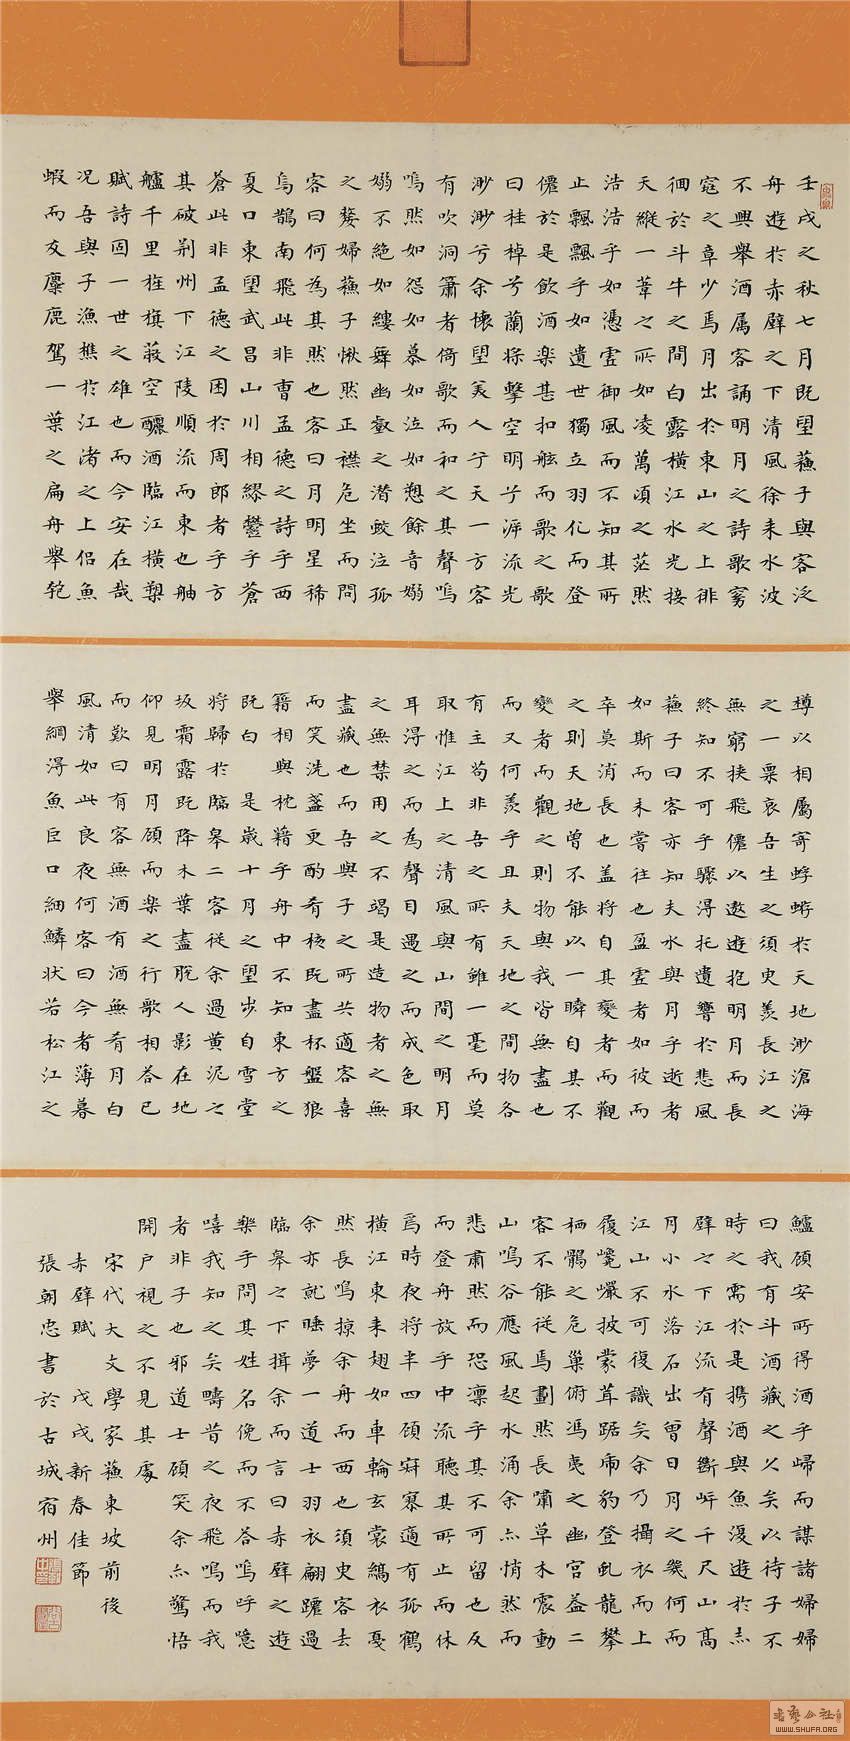 壬戌之秋七月既望蘇子與客泛
舟遊於赤壁之下清風徐来水波
不興舉酒属客誦明月之詩歌窈
窕之章少焉月出於東山之上徘
徊於斗牛之間白露橫江水光接
天縱一葦之所如凌萬頃之茫然
浩浩乎如憑虛御風而不知其所
止飄飄乎如遺世獨立羽化而登
僊於是飲酒樂甚扣舷而歌之歌
曰桂棹兮蘭槳擊空明兮泝流光
渺渺兮余懷望美人兮天一方客
有吹洞簫者倚歌而和之其聲嗚
嗚然如怨如慕如泣如愬餘音嫋
嫋不絕如縷舞幽壑之潜蛟泣孤
之嫠婦蘇子愀然正襟危坐而問
客曰何為其然也客曰月明星稀
烏鵲南飛此非曹孟德之詩乎西
夏口東望武昌山川相繆鬱乎蒼
蒼此非孟德之困於周郎者乎方
其破荆州下江陵順流而東也舳
艫千里旌旗蔽空釃酒臨江橫槊
賦詩固一世之雄也而今安在哉
况吾與子漁樵於江渚之上侶魚
蝦而友麋鹿駕一葉之扁舟舉匏
樽以相屬寄蜉蝣於天地渺滄海
之一粟哀吾生之須臾羨長江之
無窮挾飛僊以遨遊抱明月而長
終知不可乎驟得托遺響於悲風
蘇子曰客亦知夫水與月乎逝者
如斯而未嘗往也盈虛者如彼而
卒莫消長也蓋將自其變者而觀
之則天地曾不能以一瞬自其不
變者而觀之則物與我皆無盡也
而又何羨乎且夫天地之間物各
有主苟非吾之所有雖一毫而莫
取惟江上之清風與山間之明月
耳得之而為聲目遇之而成色取
之無禁用之不竭是造物者之無
盡藏也而吾與子之所共適客喜
而笑洗盞更酌肴核既盡杯盤狼
籍相與枕籍乎舟中不知東方之
既白 是歲十月之望步自雪堂
將歸於臨皋二客從余過黄泥之
坂霜露既降木葉盡脫人影在地
仰見明月顧而樂之行歌相答已
而歎曰有客無酒有酒無肴月白
風清如此良夜何客曰今者薄暮
舉網得魚巨口細鱗状若松江之
鱸顧安所得酒乎歸而謀諸婦婦
曰我有斗酒藏之久矣以待子不
時之需於是携酒與魚復遊於赤
壁之下江流有聲斷岸千尺山高
月小水落石出曾日月之幾何而
江山不可復識矣余乃攝衣而上
履巉巖披蒙茸踞虎豹登虬龍攀
栖鶻之危巢俯馮夷之幽宮蓋二
客不能從焉劃然長嘯草木震動
山鳴谷應風起水涌余亦悄然而
悲肅然而恐凛乎其不可留也反
而登舟放乎中流聽其所止而休
焉時夜將半四顧寂寥適有孤鶴
橫江東来翅如車輪玄裳縞衣戛
然長鳴掠余舟而西也須臾客去
余亦就睡夢一道士羽衣翩躚過
臨皋之下揖余而言曰赤壁之遊
樂乎問其姓名俛而不答嗚呼噫
嘻我知之矣疇昔之夜飛鳴而我
者非子也邪道士顧笑余亦驚悟
開户視之不見其處
宋代大文學家蘇東坡前後
赤壁賦 戊戌新春佳節
張朝忠書於古城宿州
WWW.SHUFA.ORG